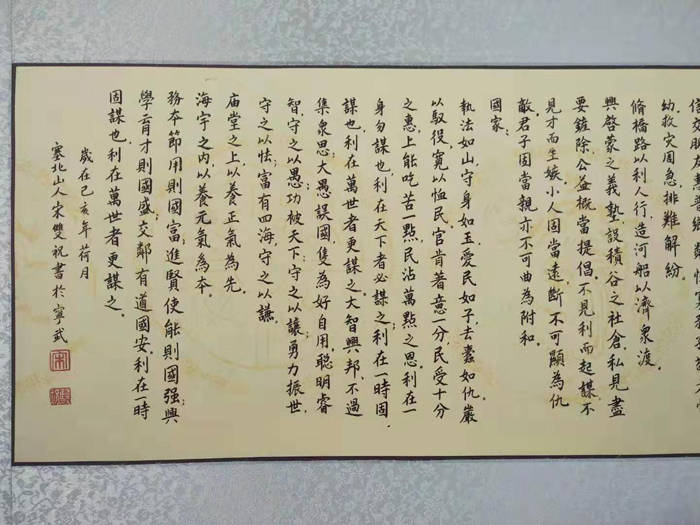 幼．救灾周急．排難解紛．
脩橋路以利人行．造河船以濟衆渡．
興啓蒙之義塾．設積谷之社倉．私見盡
要鏟除．公益概當提倡．不見利而起謀．不
見才而生嫉．小人固當遠．斷不可顯為仇
敵．君子固當親．亦不可曲為附和．
國家：
執法如山．守身如玉．愛民如子．去蠹如仇．嚴
以馭役．寬以恤民．官肯著意一分．民受十分
之惠．上能吃苦一點．民沾萬點之恩．利在一
身勿謀也．利在天下者必謀之．利在一時固．
謀也．利在萬世者更謀之．大智興邦．不過
集衆思；大愚誤國．隻為好自用．聰明睿
智．守之以愚；功被天下．守之以讓；勇力振世．
守之以怯；富有四海．守之以謙．
庙堂之上．以養正氣為先．
海宇之内．以養元氣為本．
務本節用則國富；進賢使能則國强；興
學育才則國盛；交鄰有道國安．利在一時
固謀也．利在萬世者更謀之．
歲在己亥年荷月
塞北山人宋雙祝書於寧武